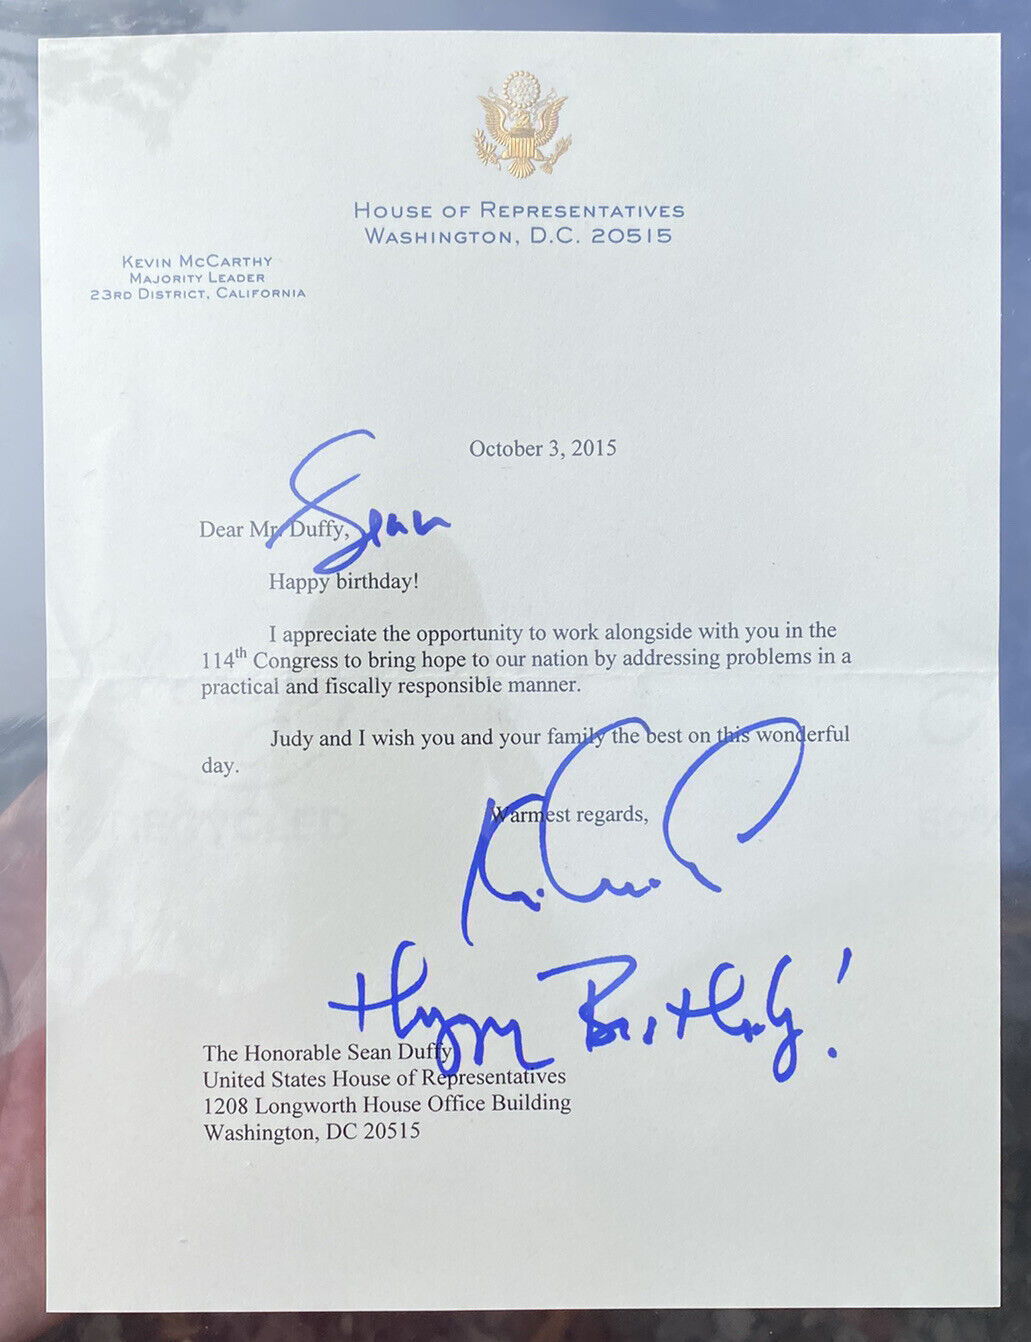 House of Representatives
Washington, D.C. 20515
Kevin McCarthy
Majority Leader
23rd District, California
October 3, 2015
Sean
Dear Mr. Duffy,
Happy birthday!
I appreciate the opportunity to work alongside with you in the
114th Congress to bring hope to our nation by addressing problems in a
practical and fiscally responsible manner.
Judy and I wish you and your family the best on this wonderful
day.
Warmest regards,
Happy Birthday!
The Honorable Sean Duffy
United States House of Representatives
1208 Longworth House Office Building
Washington, DC 20515